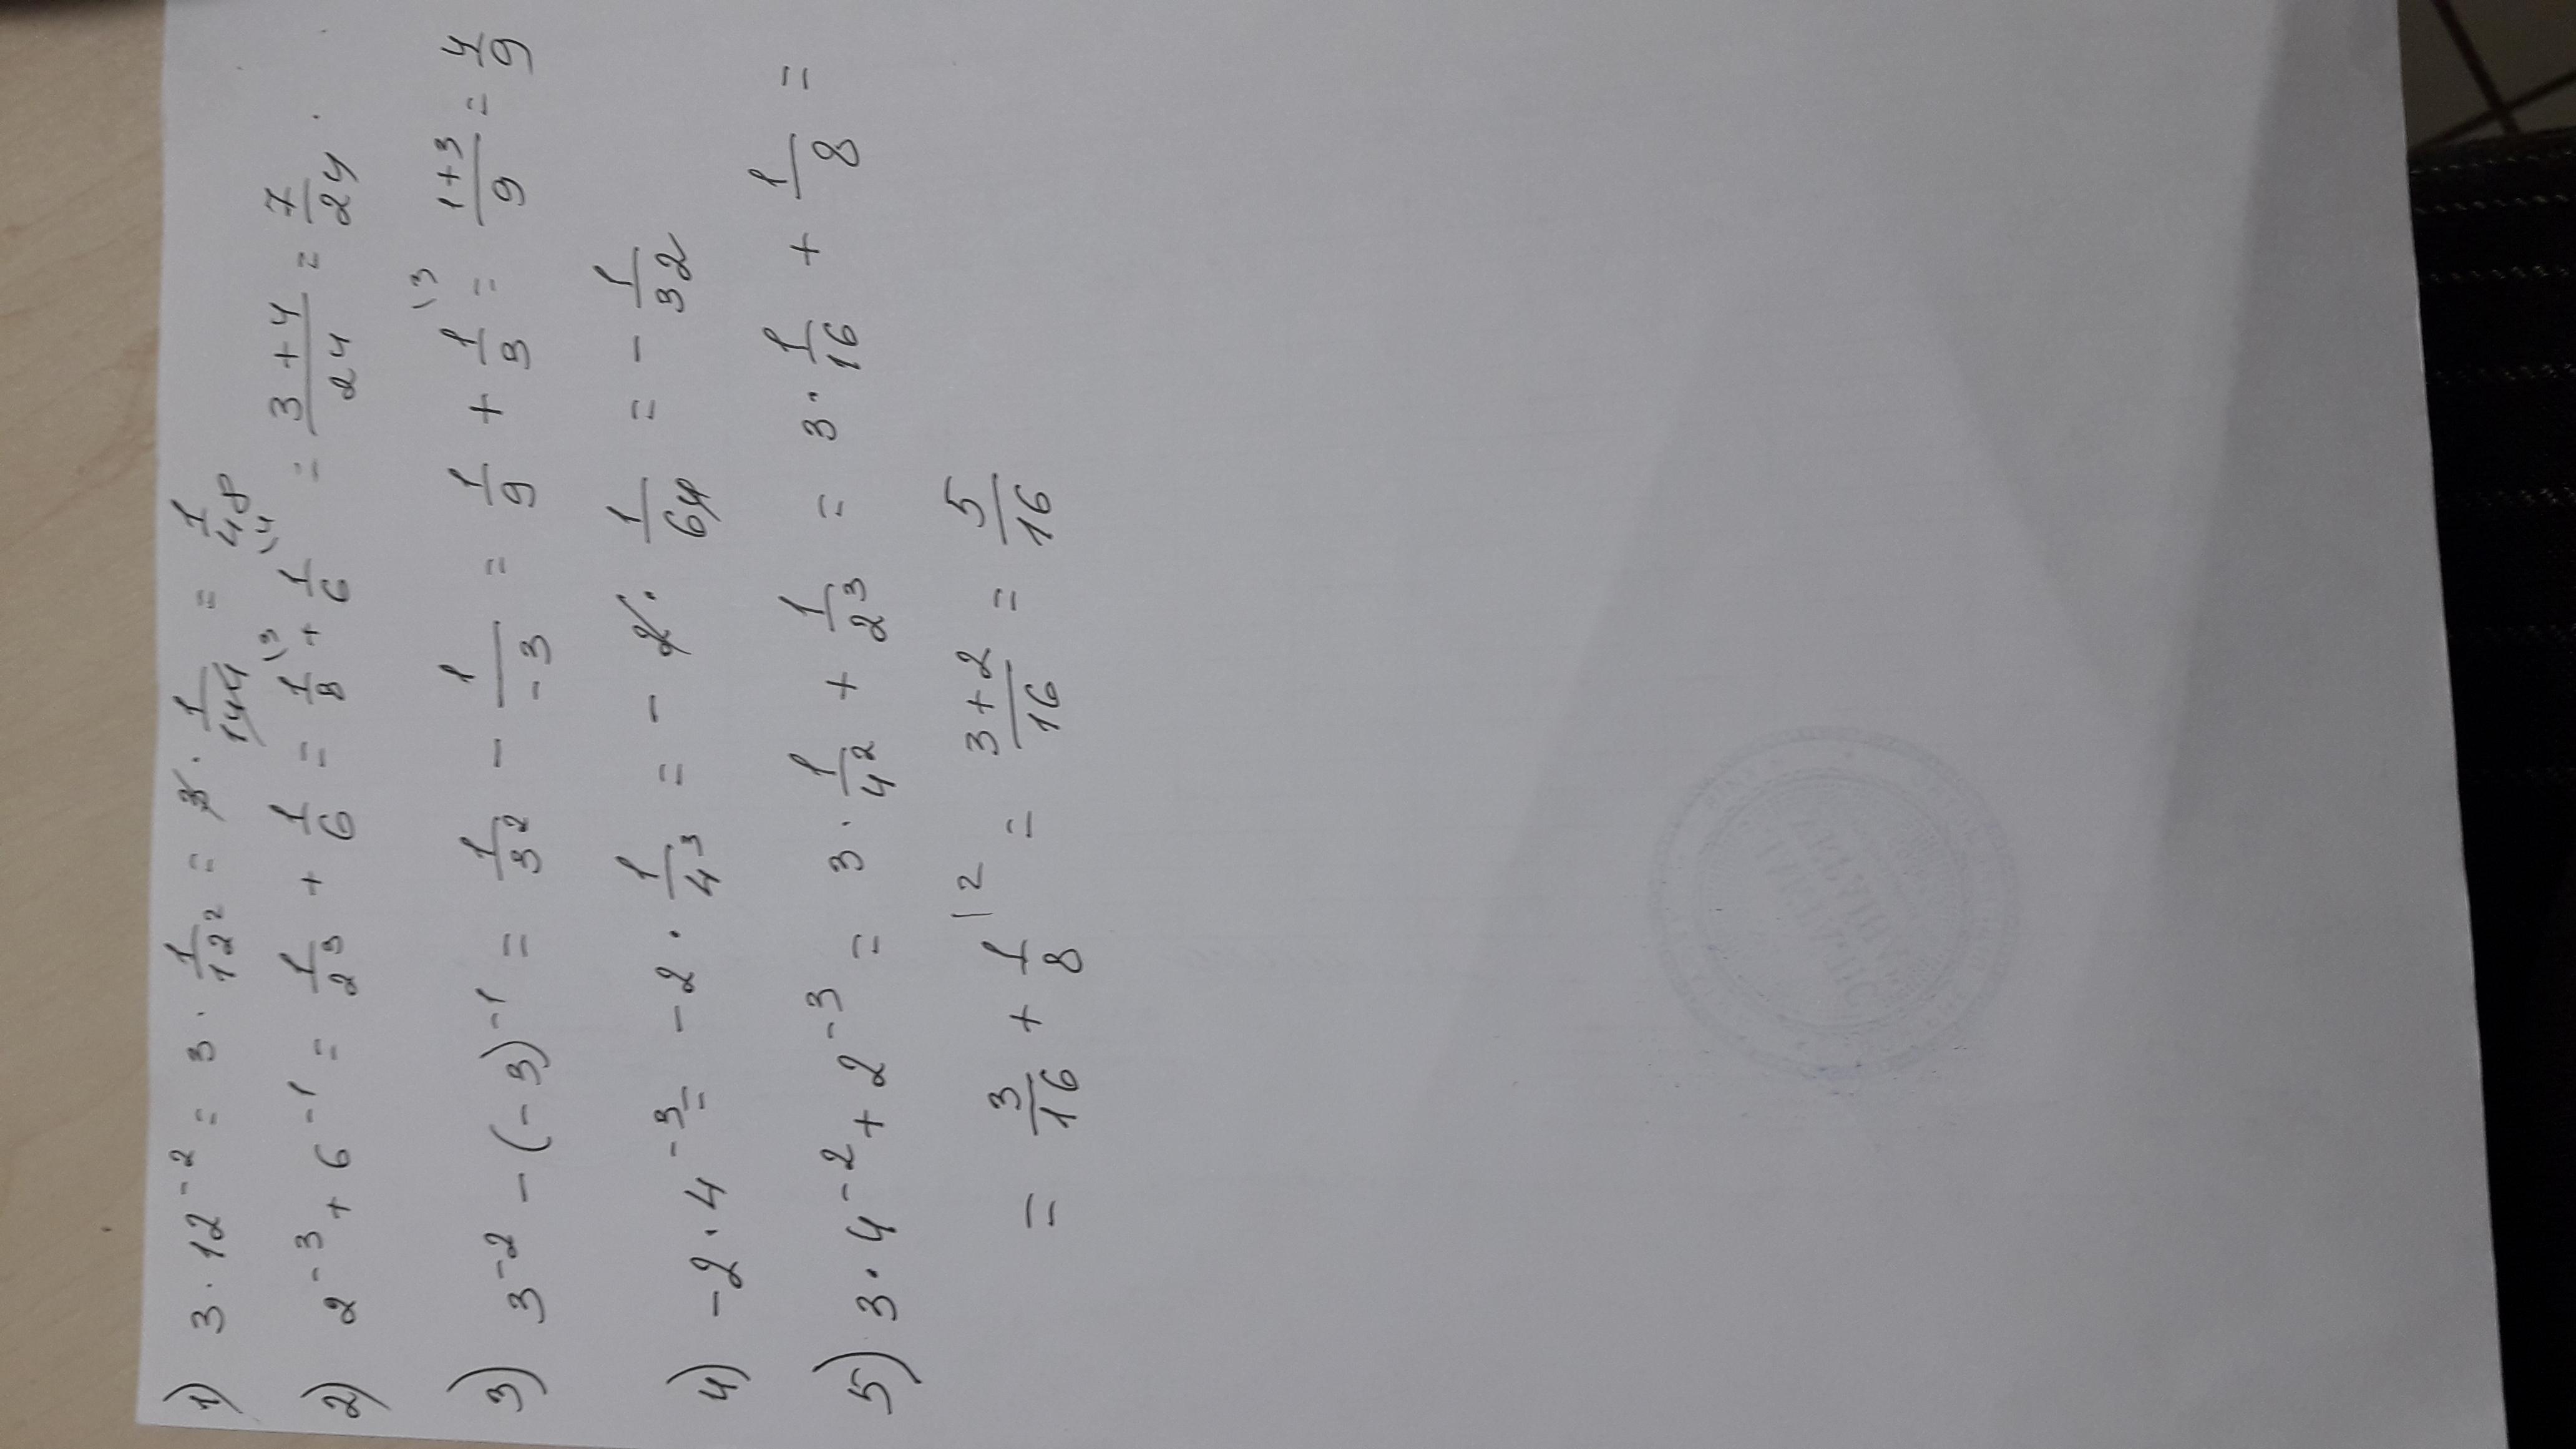 1) 3 · 12⁻² = 3 · 1/12² = 3 · 1/144 = 1/48
2) 2⁻³ + 6⁻¹ = 1/2³ + 1/6 = 1/8 \3 + 1/6 \4 = 3+4/24 = 7/24.
3) 3⁻² - (-3)⁻¹ = 1/3² - 1/-3 = 1/9 + 1/3 \3 = 1+3/9 = 4/9
4) -2 · 4⁻³ = -2 · 1/4³ = - 2 · 1/64 = - 1/32
5) 3 · 4⁻² + 2⁻³ = 3 · 1/4² + 1/2³ = 3 · 1/16 + 1/8 =
= 3/16 + 1/8 \2 = 3+2/16 = 5/16